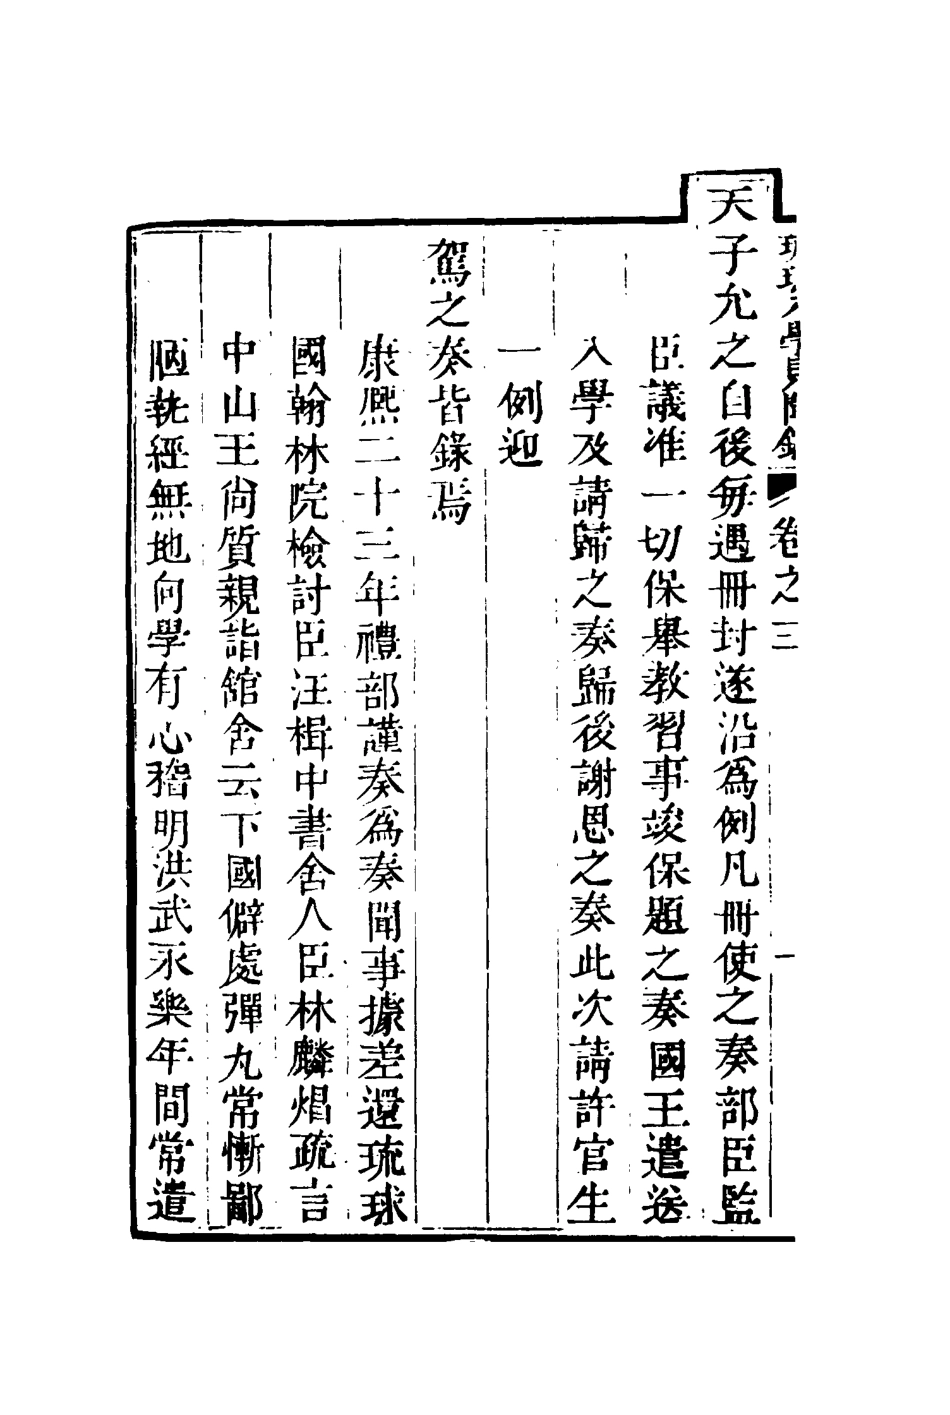 琉球入學見聞錄 卷之三 一
天子允之自後每遇冊封遂沿為例凡冊使之奏部臣監
臣議准一切保舉教習事竣保題之奏國王遣送
入學及請歸之奏歸後謝恩之奏此次請許官生
一例迎
駕之奏皆錄焉
康熙二十三年禮部謹奏為奏聞事據差還琉球
國翰林院檢討臣汪楫中書舍人臣林麟焻疏言
中山王尚質親詣舘舍云下國僻處彈丸常慚鄙
陋執經無地向學有心稽明洪武永樂年間常遣